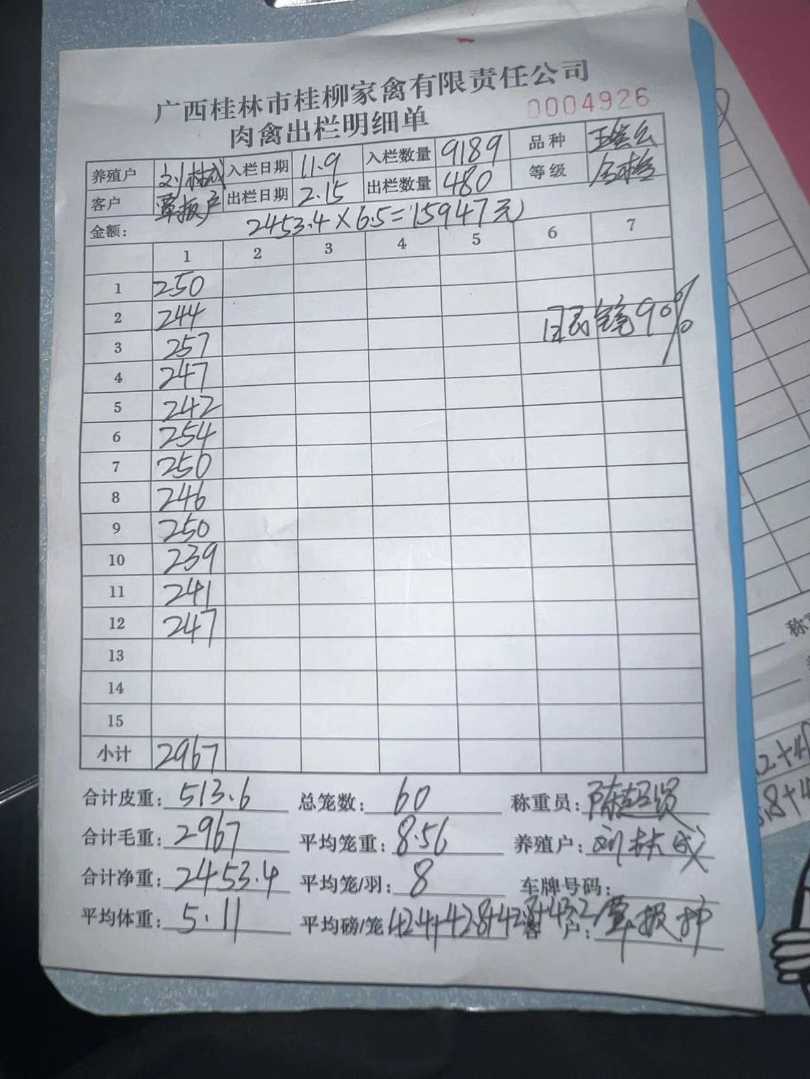 广西桂林市桂柳家禽有限责任公司
肉禽出栏明细单 0004926
养殖户 入栏日期 11.9 入栏数量 9189 品种
客户 出栏日期 2.15 出栏数量 480 等级
金额: 2453.4×6.5=15947元
1 2 3 4 5 6 7
1 250
2 244 90%
3 257
4 247
5 242
6 254
7 250
8 246
9 250
10 239
11 241
12 247
13
14
15
小计 2967
合计皮重: 513.6 总笼数: 60 称重员:
合计毛重: 2967 平均笼重: 8.56 养殖户:
合计净重: 2453.4 平均笼/羽: 8 车牌号码:
平均体重: 5.11 平均磅/笼 424+428+428+432 客 户:
称